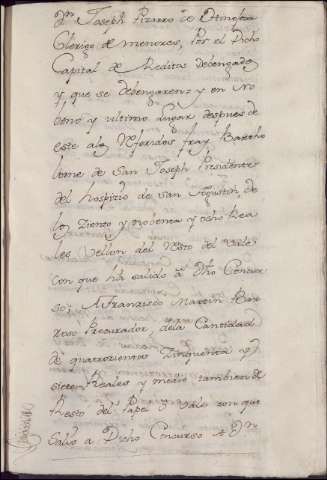 Dn Joseph Pizarro de
Clerigo de menores, Por el Dicho
Capital de Reditos debengados
y que se debengaren; y en no
veno y ultimo lugar despues de
este a los Referidos fray Bartho
lome de San Joseph Presidente
del hospicio de San Agustin, de
los Ziento y nobenta y ocho Rea
les Vellon del Resto del Vale
con que ha salido a dho Concur
so; A Francisco Martin Bor
roso Procurador, dela Cantidad
de quatrozientos Zinquenta y
siete Reales y medio tambien de
Resto del Papel o Vale con que
salio a Dicho Concurso A Dn